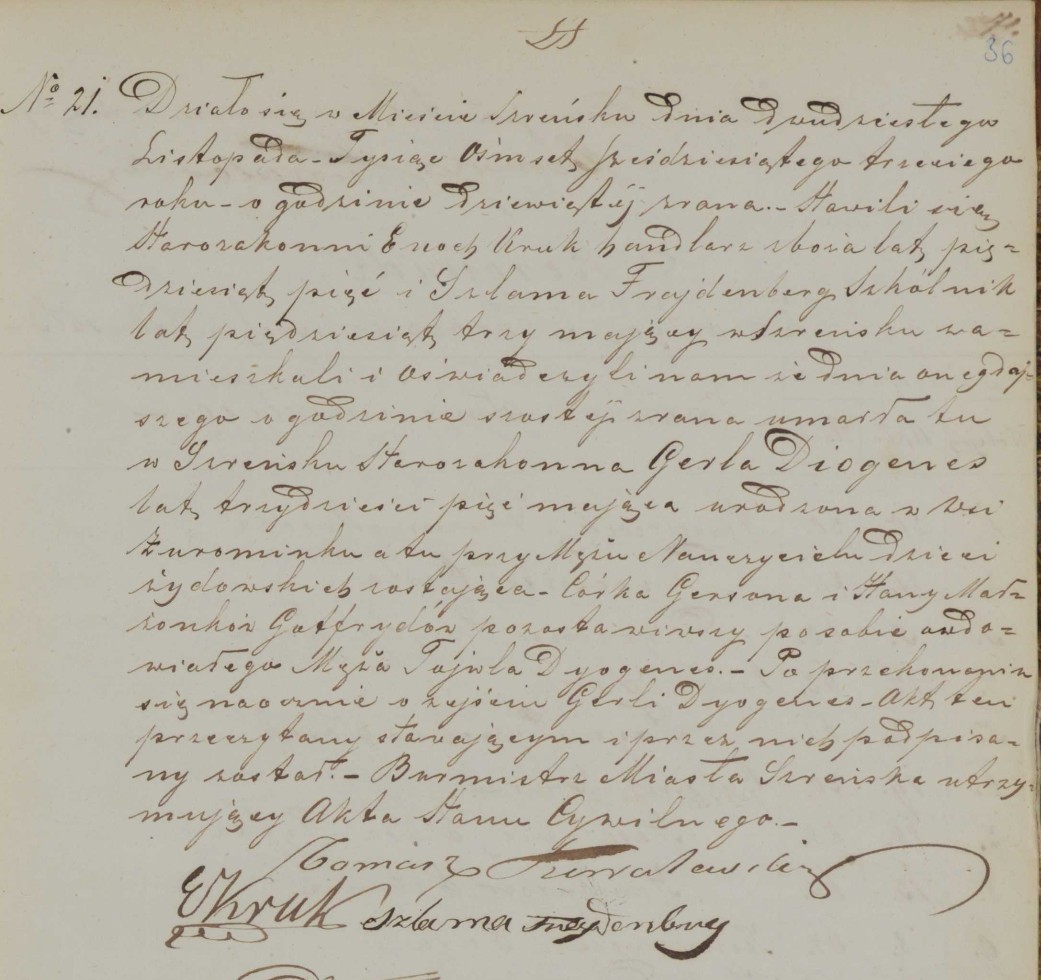 36
No 21. Działo się w Mieście Szreńsku dnia dwudziestego
Listopada - Tysiąc Ośmset sześćdziesiątego trzeciego
roku - o godzinie dziewiątéj zrana. - Stawili się
Starozakonni Enoch Kruk handlarz zboża lat pię=
dziesiąt pięć i Szlama Frajdenberg Szkólnik
lat piędziesiąt trzy mający w Szreńsku za=
mieszkali i oświadczyli nam że dnia onegdaj-
szego o godzinie szostéj zrana umarła tu
w Szreńsku Starozakonna Gerla Diogenes
lat trzydzieści pięć mająca urodzona w Wsi
Żurominku a tu przy Mężu Nauczycielu dzieci
żydowskich zostająca - Córka Gersona i Hany Mał=
żonków Gotffrydów pozostawiwszy po sobie owdo=
wiałego Męża Fajwla Dyogenes. - Po przekonaniu
się naocznie o zejściu Gerli Dyogenes - Akt ten
przeczytany stawającym i przez nich podpisa=
ny został. - Burmistrz Miasta Szreńska utrzy=
mujący Akta Stanu Cywilnego. -
Tomasz
EKruk Szlama